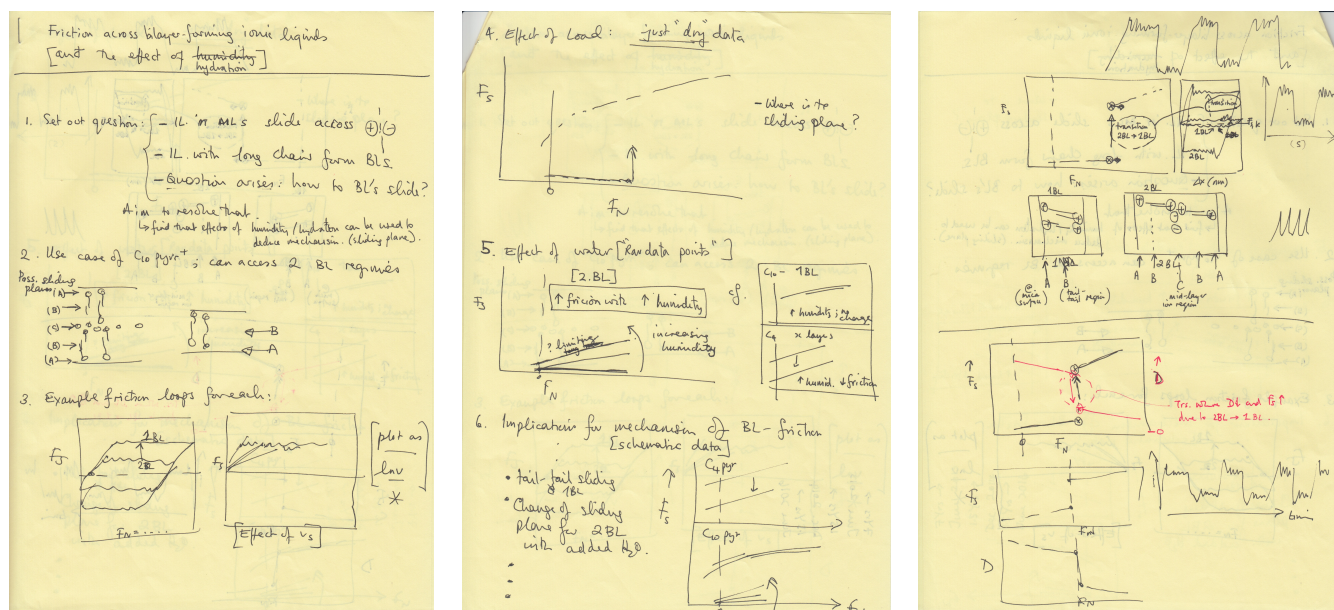 Friction across bilayer-forming ionic liquids
[and the effect of humidity]
hydration
1. Set out question: - IL in MLs slide across ⊕¦⊖
- IL with long chain form BLs.
- Question arises: how to BL's slide?
Aim to resolve that.
↳ find that effects of humidity/hydration can be used to
deduce mechanism. (sliding plane).
2. Use case of C10 pyrr+; can access 2 BL regimes
Poss. sliding
planes
(A)→
(B)→
(C)→
(B)→
(A)→
B
A
3. Example friction loops for each:
1BL
2BL
Fs
FN = .....
Fs
[Effect of vs]
[plot as
lnv]
*
4. Effect of Load: just "dry" data
Fs
FN
- Where is to
sliding plane?
5. Effect of water ["Ran data points"]
[2.BL]
↑ friction with ↑ humidity
Fs
? limiting
increasing
humidity
FN
cf.
C10 - 1BL
↑ humidity; no
change
C4 x layers
↑ humid. ↓ friction
6. Implications for mechanism of BL-friction
[schematic data]
• tail-tail sliding
@ 1BL
• Change of sliding
plane for 2BL
with added H2O.
↑
Fs
C4 pyr
C10 pyr
Fs
transition
2BL→1BL
FN
transition
1BL
2BL
Fk
Δx (nm)
(s)
1BL
2BL
A B
A B C B A
(@
mica
surface)
(tail-
tail region)
mid-layer
ion region
↑
Fs
FN
↑
D
0
Trs. where D↓ and Fs↑
due to 2BL→1BL.
Fs
FN
D
FN